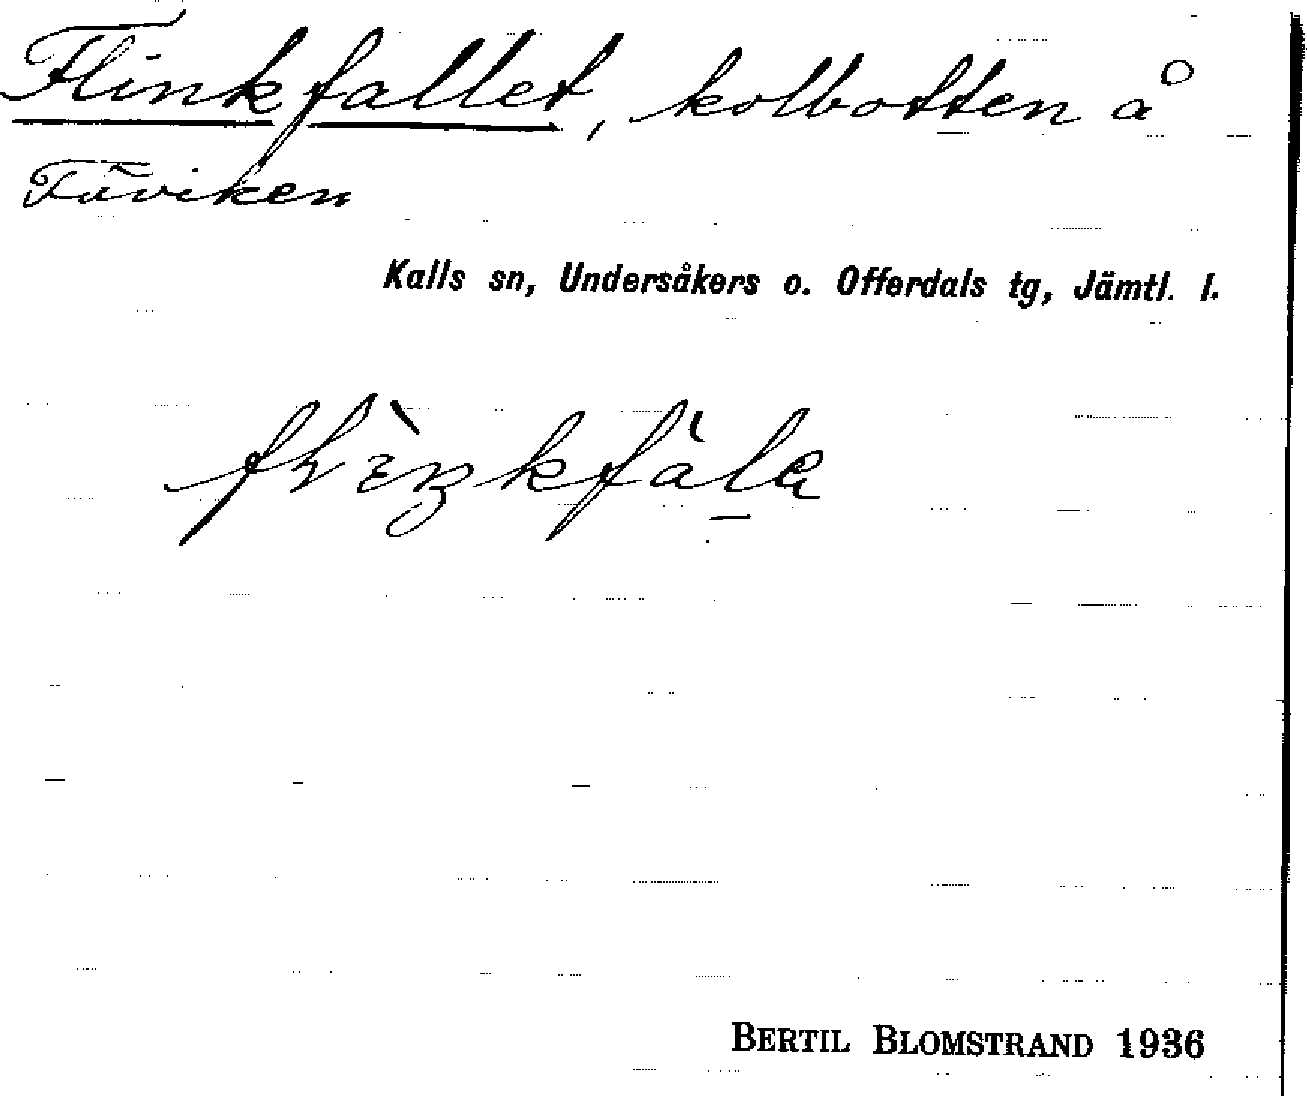 Flinkfallet, kolbotten å
Tuviken
Kalls sn, Undersåkers o. Offerdals tg, Jämtl. l.
BERTIL BLOMSTRAND 1936